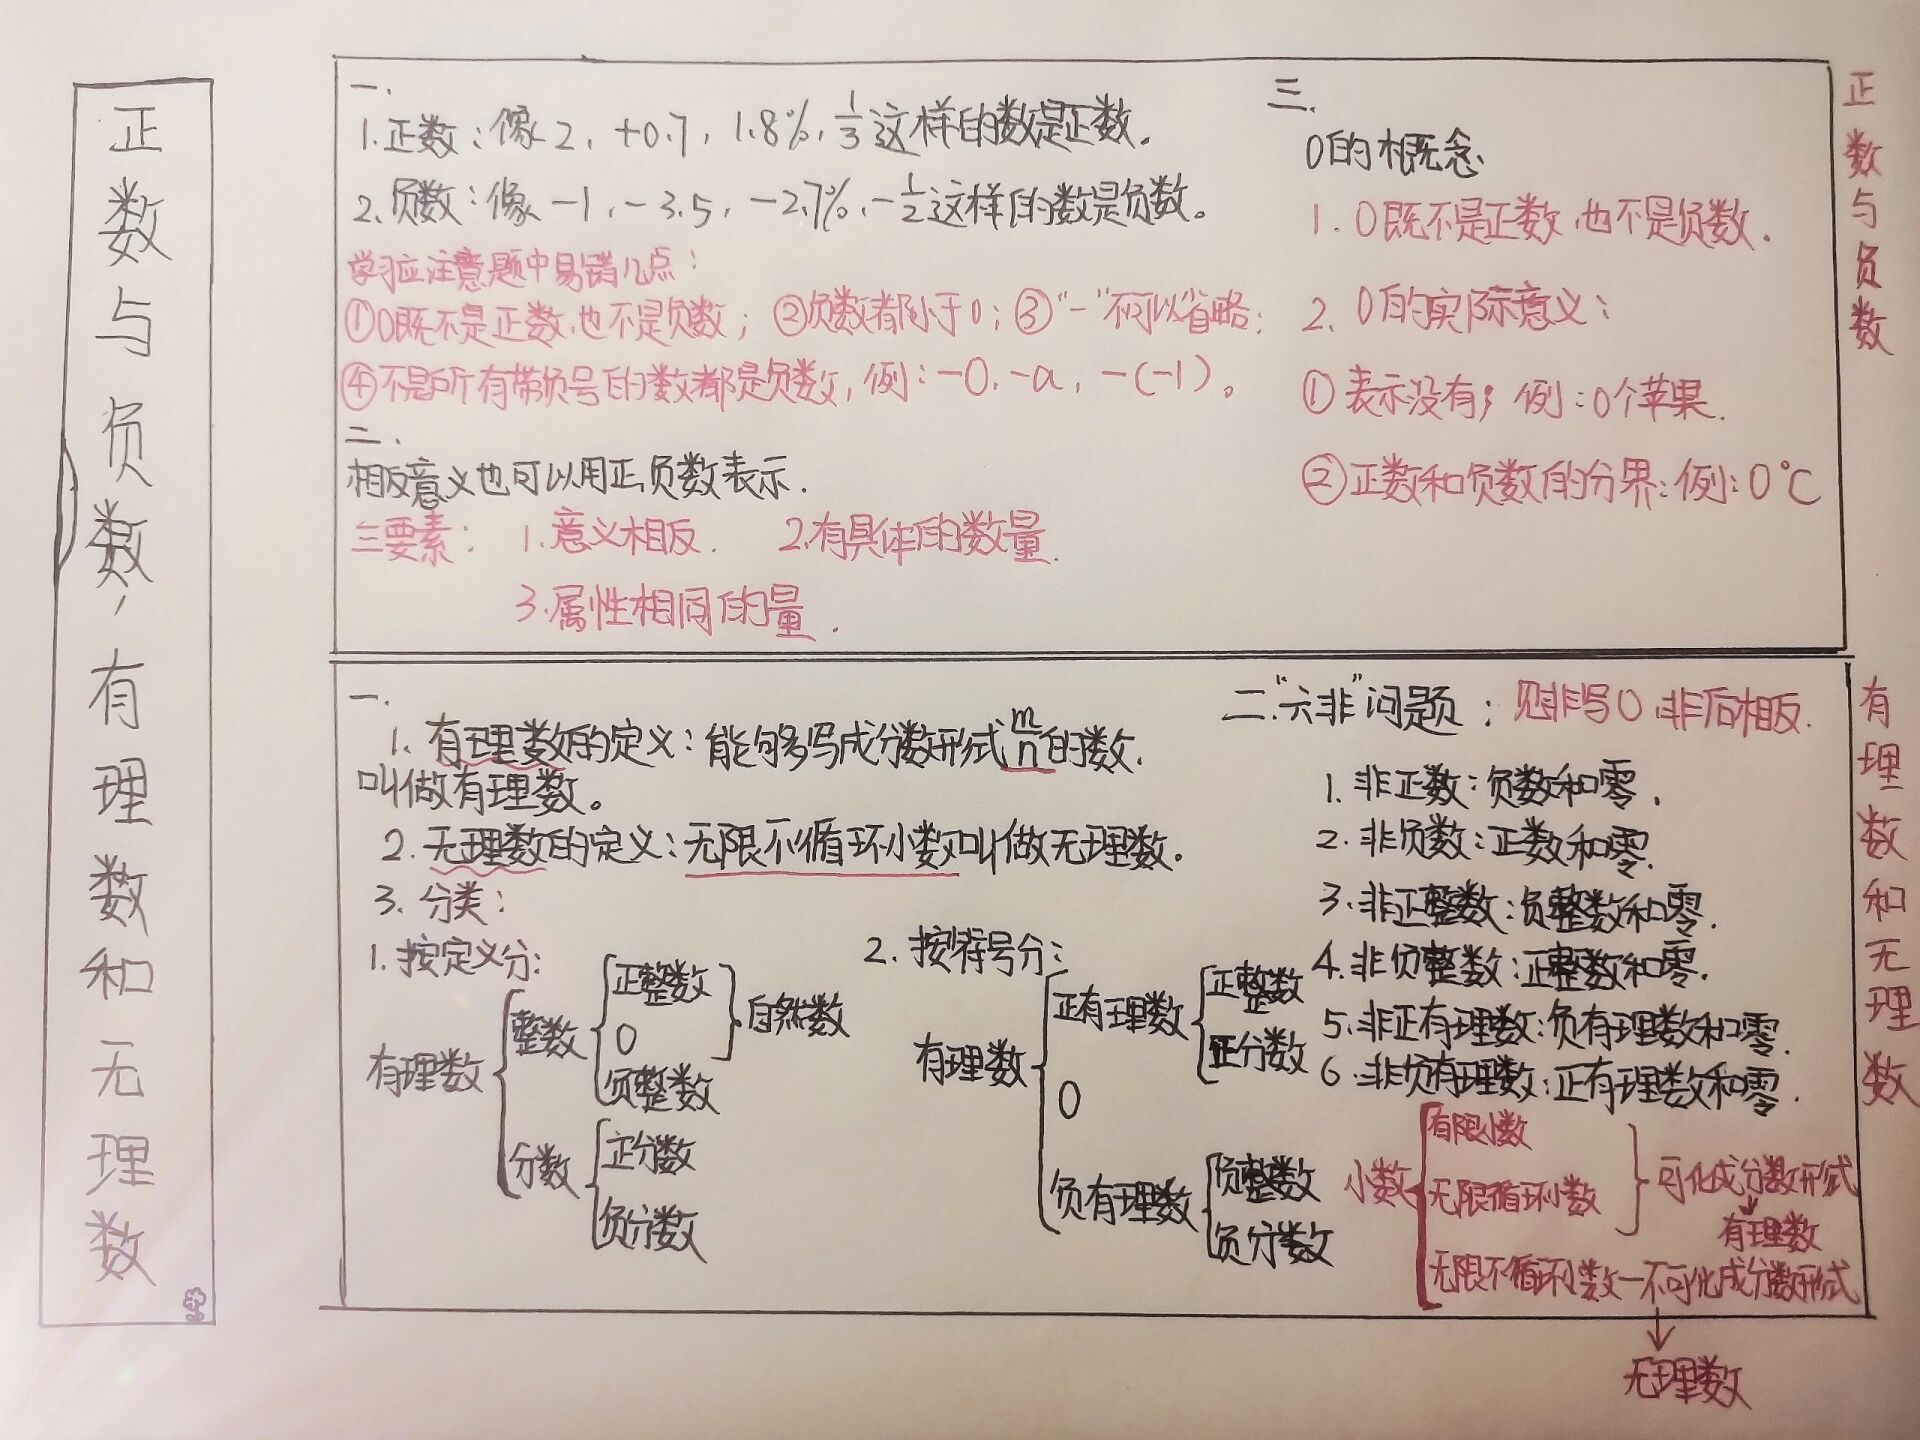 正数与负数，有理数和无理数
正数与负数
一.
1.正数：像2，+0.7，1.8%，1/3这样的数是正数。
2.负数：像-1，-3.5，-2.7%，-1/2这样的数是负数。
学习应注意题中易错几点：
①0既不是正数，也不是负数；②负数都小于0；③“-”不可以省略；
④不是所有带负号的数都是负数，例：-0，-a，-(-1)。
二.
相反意义也可以用正，负数表示．
三要素：1.意义相反． 2.有具体的数量．
3.属性相同的量．
三.
0的概念．
1.0既不是正数，也不是负数．
2.0的实际意义：
①表示没有；例：0个苹果．
②正数和负数的分界：例：0℃
有理数和无理数
一.
1.有理数的定义：能够写成分数形式m/n的数，
叫做有理数。
2.无理数的定义：无限不循环小数叫做无理数。
3.分类：
1.按定义分：
有理数
整数
正整数
0
负整数
自然数
分数
正分数
负分数
2.按符号分：
有理数
正有理数
正整数
正分数
0
负有理数
负整数
负分数
二.“六非”问题：见非写0，非后相反．
1.非正数：负数和零．
2.非负数：正数和零．
3.非正整数：负整数和零．
4.非负整数：正整数和零．
5.非正有理数：负有理数和零．
6.非负有理数：正有理数和零．
小数
有限小数
无限循环小数
可化成分数形式
有理数
无限不循环小数—不可化成分数形式
无理数